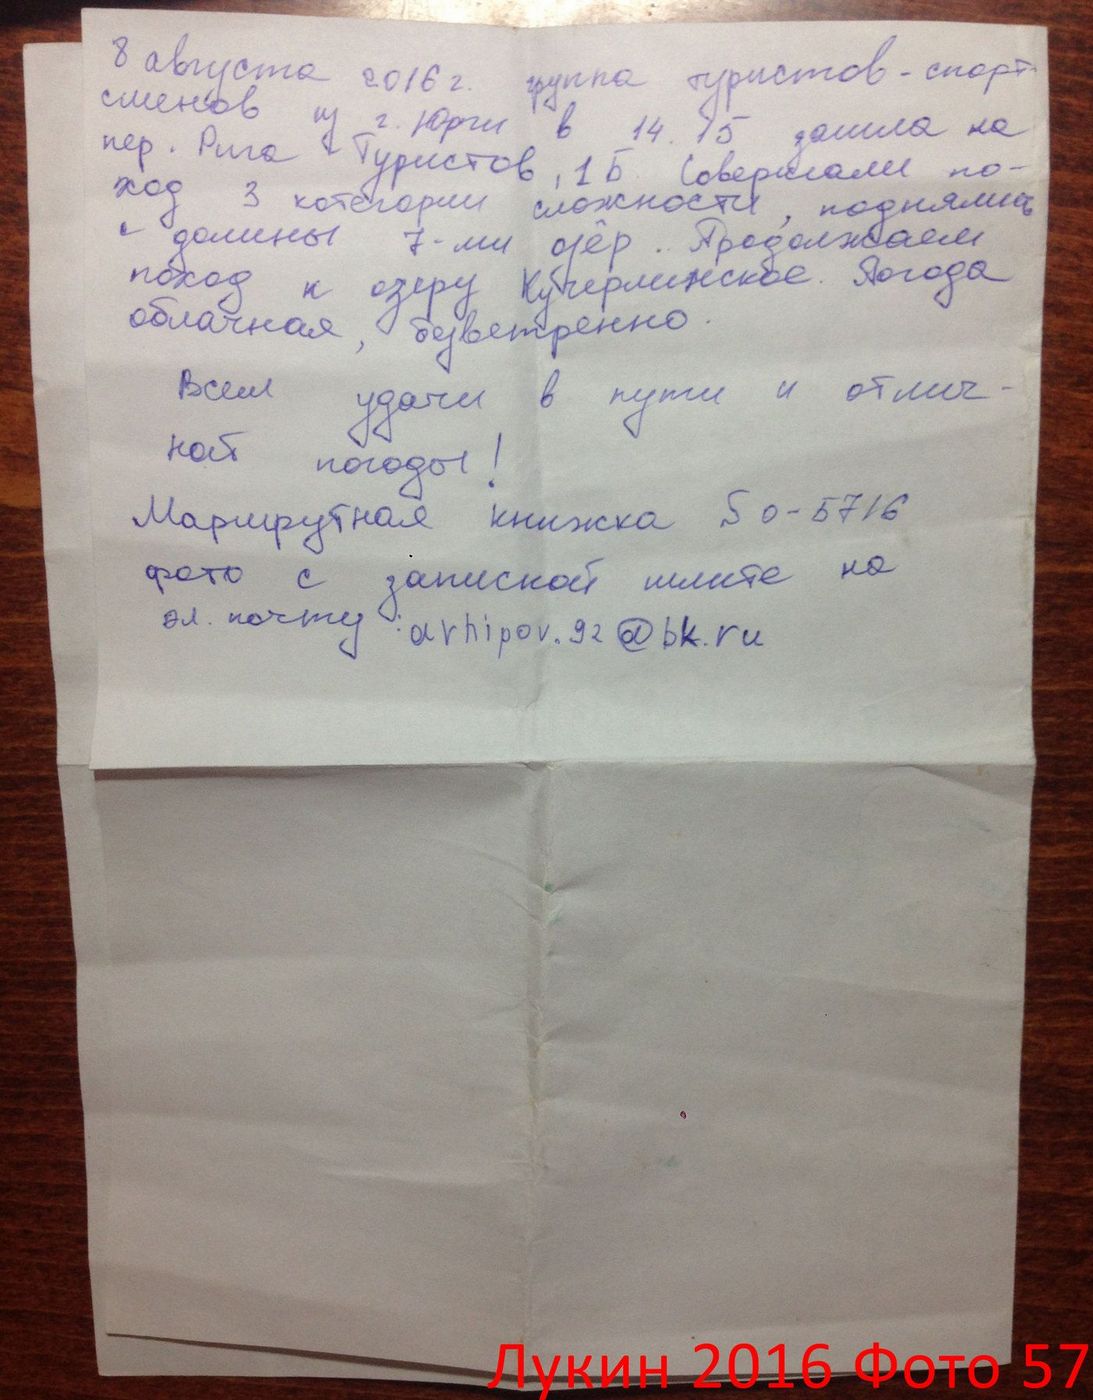 8 августа 2016 г. группа туристов-спорт-
сменов из г. Юрги в 14.15 зашла на
пер. Рига - Туристов, 1Б. Совершали по-
ход 3 категории сложности, поднялись
с долины 7-ми озёр. Продолжаем
поход к озеру Кучерлинское. Погода
облачная, безветренно.
Всем удачи в пути и отлич-
ной погоды!
Маршрутная книжка 50-5716
фото с запиской шлите на
эл. почту: arhipov.92@bk.ru
Лукин 2016 Фото 57